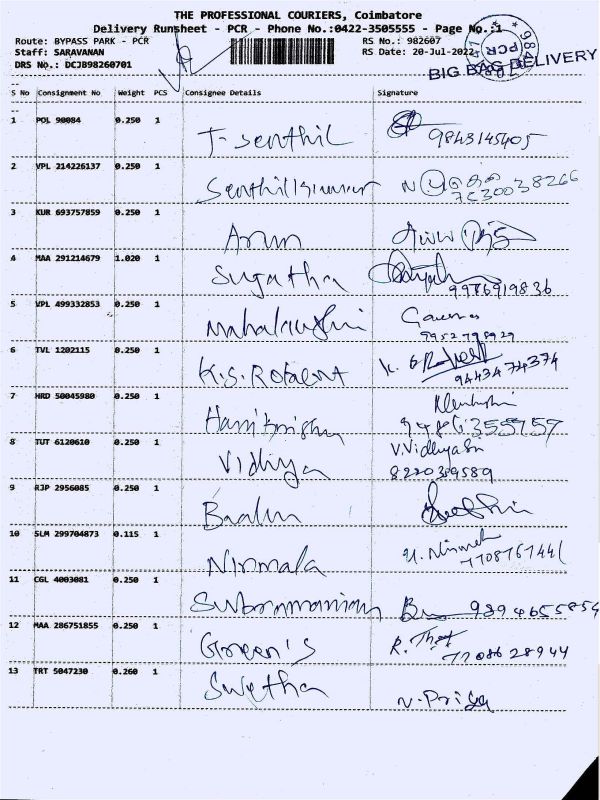 THE PROFESSIONAL COURIERS, Coimbatore
Delivery Runsheet - PCR - Phone No.:0422-3505555 - Page No.:1
Route: BYPASS PARK - PCR
RS No.: 982607
Staff: SARAVANAN
RS Date: 20-Jul-2022
DRS No.: DCJB98260701
BIG BAG DELIVERY
PCR
S No Consignment No Weight PCS Consignee Details Signature
1 POL 90084 0.250 1 T. Senthil 9843145405
2 VPL 214226137 0.250 1 Senthilkumar
3 KUR 693757859 0.250 1 Arun
4 MAA 291214679 1.020 1 Sugatha 9976919836
5 VPL 499332853 0.250 1 Mahalakshmi
6 TVL 1202115 0.250 1 K.S. Robert 9443474374
7 HRD 50045980 0.250 1 Harikrishna 9486355757
8 TUT 6120610 0.250 1 Vidhya V.Vidhya 8220309589
9 RJP 2956085 0.250 1
10 SLM 299704873 0.115 1 Nirmala 7708767441
11 CGL 4003081 0.250 1 Subramanian 9894655854
12 MAA 286751855 0.250 1 Green's 7708628944
13 TRT 5047230 0.260 1 Swetha N. Priya